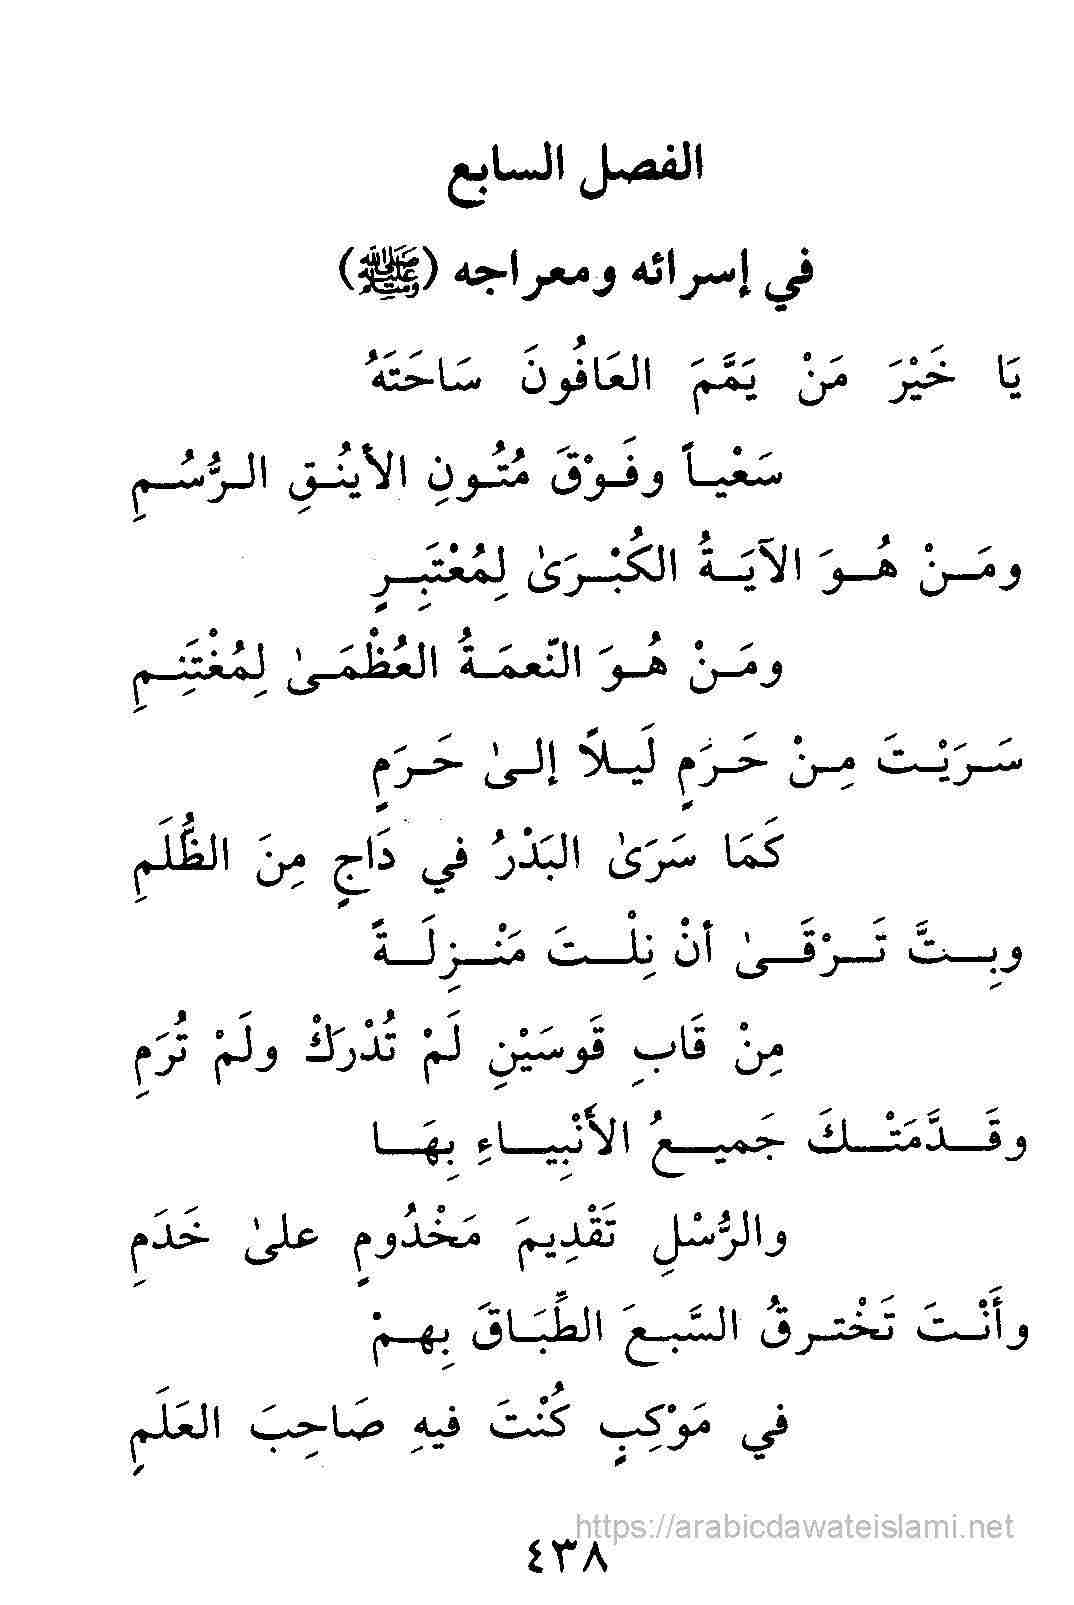 الفصل السابع
في إسرائه ومعراجه (ﷺ)
يَا خَيْرَ مَنْ يَمَّمَ العَافُونَ سَاحَتَهُ
سَعْياً وفَوْقَ مُتُونِ الأينُقِ الرُّسُمِ
ومَنْ هُوَ الآيَةُ الكُبْرَىٰ لِمُعْتَبِرٍ
ومَنْ هُوَ النّعمَةُ العُظْمَىٰ لِمُغْتَنِمِ
سَرَيْتَ مِنْ حَرَمٍ لَيلاً إلىٰ حَرَمٍ
كَمَا سَرَىٰ البَدْرُ في دَاجٍ مِنَ الظُّلَمِ
وبِتَّ تَرْقَىٰ أنْ نِلْتَ مَنْزِلَةً
مِنْ قَابِ قَوسَيْنِ لَمْ تُدْرَكْ ولَمْ تُرَمِ
وقَدَّمَتْكَ جَميعُ الأَنْبِياءِ بِهَا
والرُّسْلِ تَقْدِيمَ مَخْدُومٍ علىٰ خَدَمِ
وأَنْتَ تَخْترقُ السَّبعَ الطِّبَاقَ بِهمْ
في مَوْكِبٍ كُنْتَ فيهِ صَاحِبَ العَلَمِ
https://arabicdawateislami.net
٤٣٨